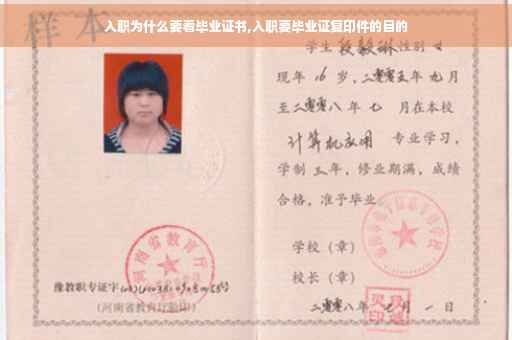 入职为什么要看毕业证书,入职要毕业证复印件的目的
样本
学生段毅琳性别女
现年16岁,二零零五年九月
至二零零八年七月在本校
计算机应用 专业学习,
学制三年,修业期满,成绩
合格,准予毕业
学校(章)
校长(章)
二零零八年七月一日
河南省教育厅
豫教职专证字
(河南省教育厅验印)